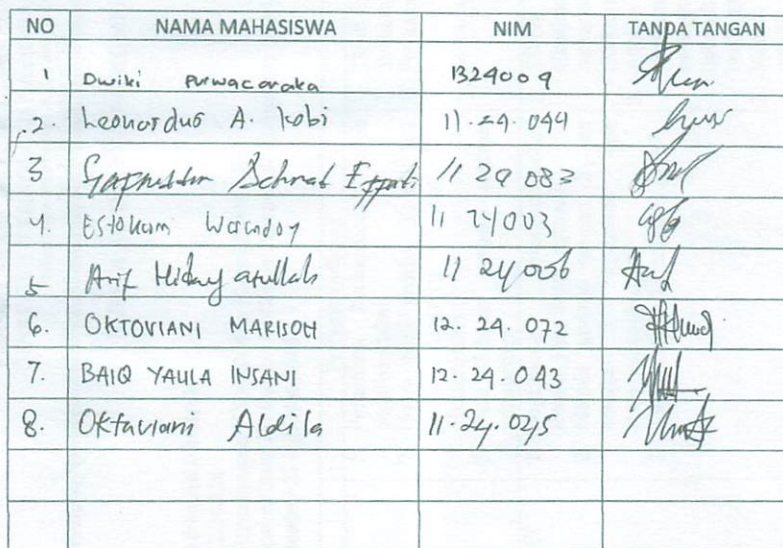 NO NAMA MAHASISWA NIM TANDA TANGAN
1 Dwiki Purwacaraka 1324009
2. Leonardus A. Kobi 11.24.044
3 11 24 083
4. Estokam 11 24003
5 Arif Hidayatullah 11 24006
6. OKTOVIANI MARISON 12.24.072
7. BAIQ YAULA INSANI 12.24.043
8. Oktaviani Aldila 11.24.045